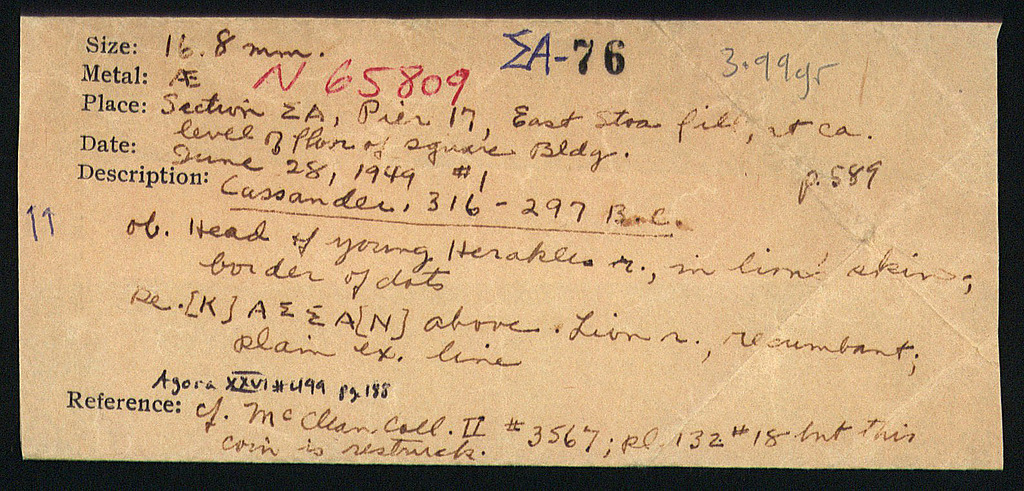 Size: 16.8 mm. ΣΑ-76 3.99gr
Metal: Æ N 65809
Place: Section ΣΑ, Pier 17, East Stoa fill, at ca.
level of floor of square Bldg.
Date: June 28, 1949 #1 p. 589
Description: Cassander, 316-297 B.C.
↑↑ ob. Head of young Herakles r., in lion's skin;
border of dots
Re. [Κ]ΑΣΣΑ[Ν] above. Lion r., recumbant;
plain ex. line
Agora XXVI #499 pg. 188
Reference: cf. McClean Coll. II #3567; pl. 132 #18 but this
coin is restruck.